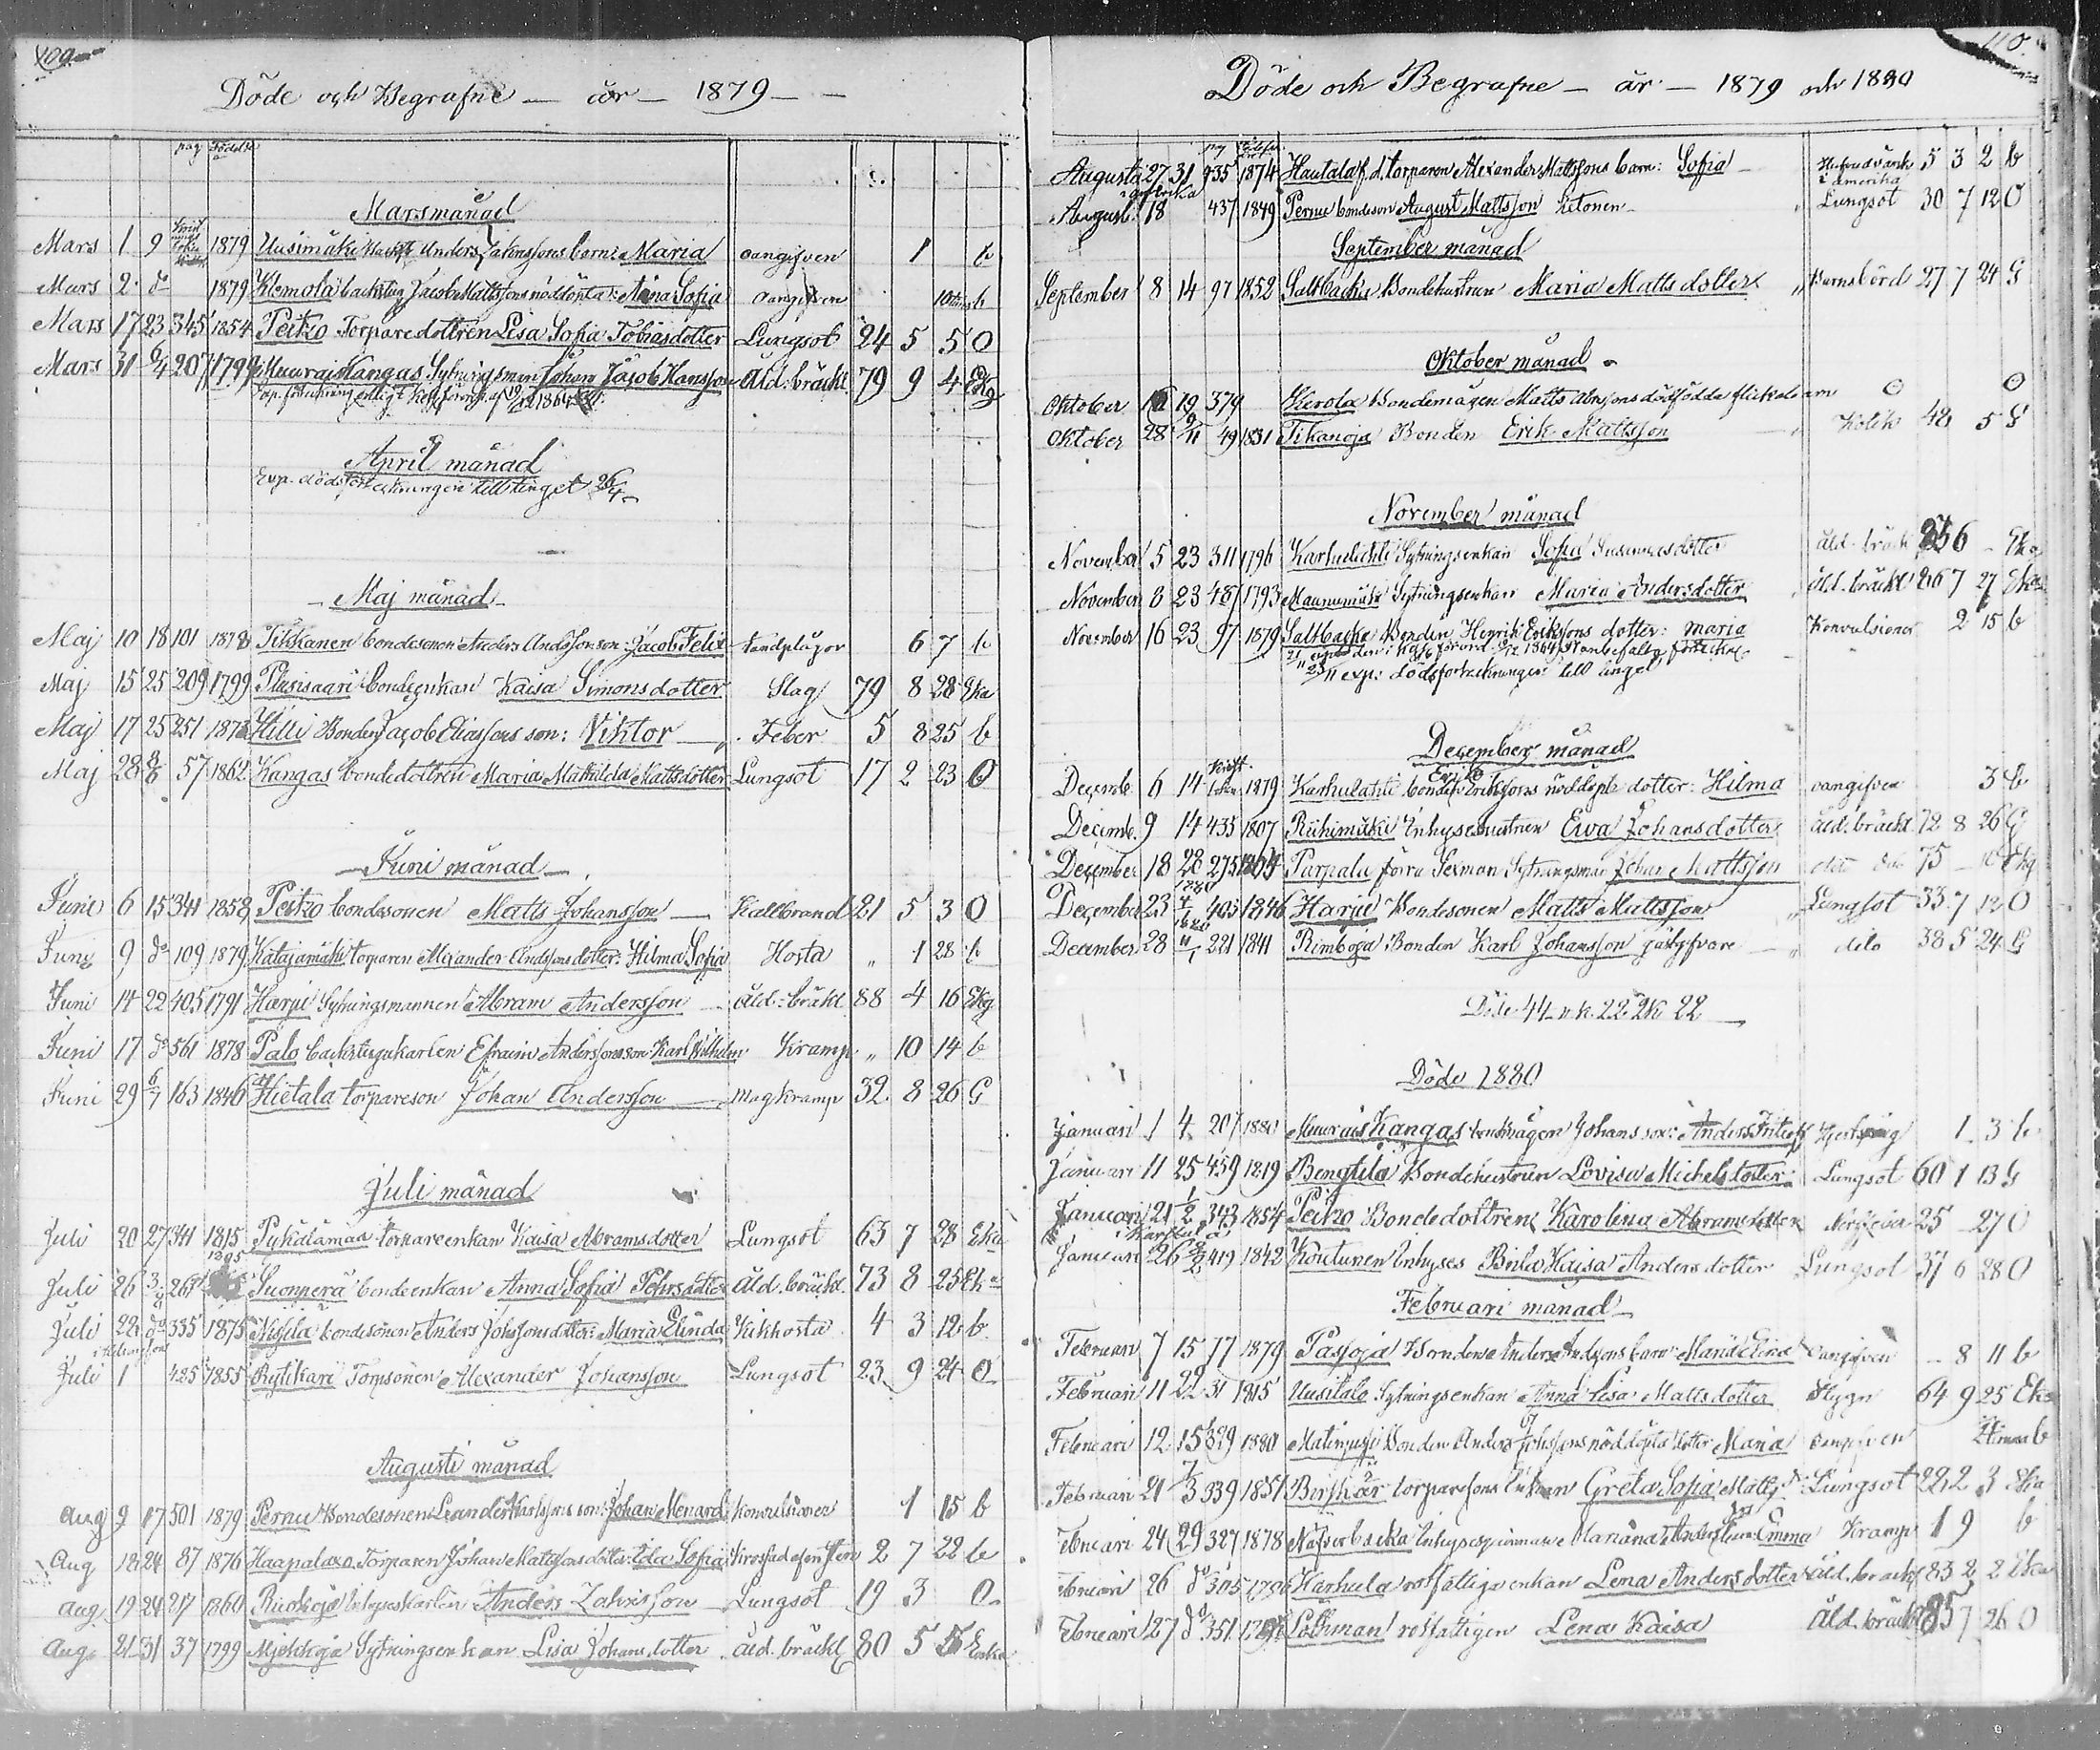 109
Döde och Begrafne — år — 1879 —
pag födelse
Marsmånad
Mars 1 9 1879 Uusimäki Anders Jakobssons barn: Maria oangifven 1 b
Mars 2 do 1879 Klemola backstug Jacob Mattssons nöddöpta: Anna Sofia oangifven 10 tim b
Mars 17 23 345 1854 Peitzo Torparedottren Lisa Sofia Tobiasdotter Lungsot 24 5 5 O
Mars 31 6/4 207 1799 Muurais Kangas Sytningsman Johan Jacob Hansson Åld. bräckl. 79 9 4 Ekg
April månad
Exp. dödsförteckningen till tinget 26/4
Maj månad
Maj 10 18 101 1878 Tikkanen bondesonen Anders Andssons son: Jacob Felix tandplågor 6 7 b
Maj 15 25 209 1799 Plusisaari bondeenkan Kaisa Simonsdotter Slag 79 8 28 Eka
Maj 17 25 251 1873 Hilli Bonden Jacob Eliassons son: Viktor Feber 5 8 25 b
Maj 28 8/6 57 1862 Kangas bondedottren Maria Mathilda Mattsdotter Lungsot 17 2 23 O
Juni månad
Juni 6 15 344 1858 Peitzo bondesonen Matts Johansson Kallbrand 21 5 3 O
Juni 9 do 109 1879 Katajamäki torparen Alexander Andssons dotter: Hilma Sofia Hosta " 1 28 b
Juni 14 22 405 1791 Harju Sytningsmannen Abram Andersson åld. bräkl 88 4 16 Ekg
Juni 17 do 561 1878 Palo backstugukarlen Efraim Anderssons son Karl Wilhelm Kramp " 10 14 b
Juni 29 6/7 163 1846 Hietala torpareson Johan Andersson Magkramp 32 8 26 G
Juli månad
Juli 20 27 344 1815 Pykälämaa torpareenkan Kaisa Abramsdotter Lungsot 63 7 28 Eka
Juli 26 3/8 267 1805 Suonperä bondeenkan Anna Sofia Pehrsdotter åld. bräckl. 73 8 25 Eka
Juli 22 do 335 1875 bondesonen Anders Johssons dotter: Maria Elinda Kikhosta 4 3 12 b
Juli 1 425 1855 Rytikari Torpsonen Alexander Johansson Lungsot 23 9 24 O
Augusti månad
Aug 9 17 501 1879 Pernu Bondesonen Leander Karlssons son: Johan Menard Konvulsioner 1 15 b
Aug 18 24 87 1876 Haapalaxo Torparen Johan Mattssons dotter: Ida Sofia 2 7 22 b
Aug 19 24 27 1860 Ruohoja Inhyseskarlen Anders Zakrisson Lungsot 19 3 O
Aug 21 31 37 1799 Sytningsenkan Lisa Johansdotter åld. bräckl 80 5 5 Enka
110
Döde och Begrafne — år — 1879 och 1880
Augusti 27 31 435 1874 Hautala f.d. torparen Alexander Mattssons barn: Sofia 5 3 2 b
i amerika
Augusti 18 437 1849 Pernu bondeson August Mattsson Ketonen Lungsot 30 7 12 O
September månad
September 8 14 97 1852 Saltbacka Bondehustrun Maria Mattsdotter Barnsbörd 27 7 24 G
Oktober månad
Oktober 16 19 379 Kerola Bondemågen Matts Abrssons dödfödda flickebarn O O
Oktober 28 9/11 49 1831 Tikanoja Bonden Erik Mattsson Kolik 48 5 G
November månad
November 5 23 311 1796 Karhulahti Sytningsenkan Sofia Susannasdotter åld. bräck 6 Eka
November 8 23 487 1793 Maunumäki Sytningsenkan Maria Andersdotter åld. bräckl 86 7 27 Eka
November 16 23 97 1879 Saltbacka Bonden Henrik Erikssons dotter: Maria Konvulsioner 2 15 b
23/11 exp. dödsförteckningen till tinget
December månad
Decembr 6 14 1879 Karhulahti bonden Erik Erikssons nöddöpta dotter: Hilma oangifven 3 b
Decemb. 9 14 435 1807 Riihimäki Inhyseshustrun Ewa Johansdotter åld. bräckl 72 8 26 G
December 18 28 275 1804 Parpala förra Sexman Sytningsman Johan Mattsson 75 Ekg
December 23 405 1846 Harju Bondesonen Matts Mattsson Lungsot 33 7 12 O
December 28 11/1 221 1841 Rimboja Bonden Karl Johansson gästgifvare dito 38 5 24 G
Döde 44 m k. 22 Qk 22
Döde 1880
Januari 1 4 207 1880 Muurais Kangas bondmågen Johans son: Anders Fritioff 1 3 b
Januari 11 25 459 1819 Bengtila Bondehustrun Lovisa Michelsdotter Lungsot 60 1 13 G
Januari 21 1/2 343 1854 Peitzo Bondedottren Karolina Abramsdotter Nerffeber 25 27 O
i Karstula
Januari 26 8/2 419 1842 Koutunen Inhyses Brita Kaisa Andersdotter Lungsot 37 6 28 O
Februari månad
Februari 7 15 77 1879 Pasoja Bonden Anders Andssons barn: Maria Elina oangifven 8 11 b
Februari 11 22 31 1815 Uusitalo Sytningsenkan Anna Lisa Mattsdotter Stygn 64 9 25 Eka
Februari 12 15 389 1880 Matinjussi Bonden Anders Johssons nöddöpta dotter Maria oangifven 2 timma b
Februari 21 7/3 339 1857 torparesons enkan Greta Sofia Mattsdr Lungsot 22 2 3 Eka
Februari 24 29 327 1878 Näsverbacka Inhysesqvinnan Mariana Andersdrs barn: Emma Kramp 1 9 b
Februari 26 do 305 Harhula rotfattiga enkan Lena Andersdotter åld. bräckl 83 2 2 Eka
Februari 27 do 351 Löthman rotfattigen Lena Kaisa åld. bräckl 85 7 26 O